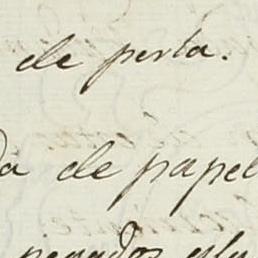 de perla.
da de papel
pegados